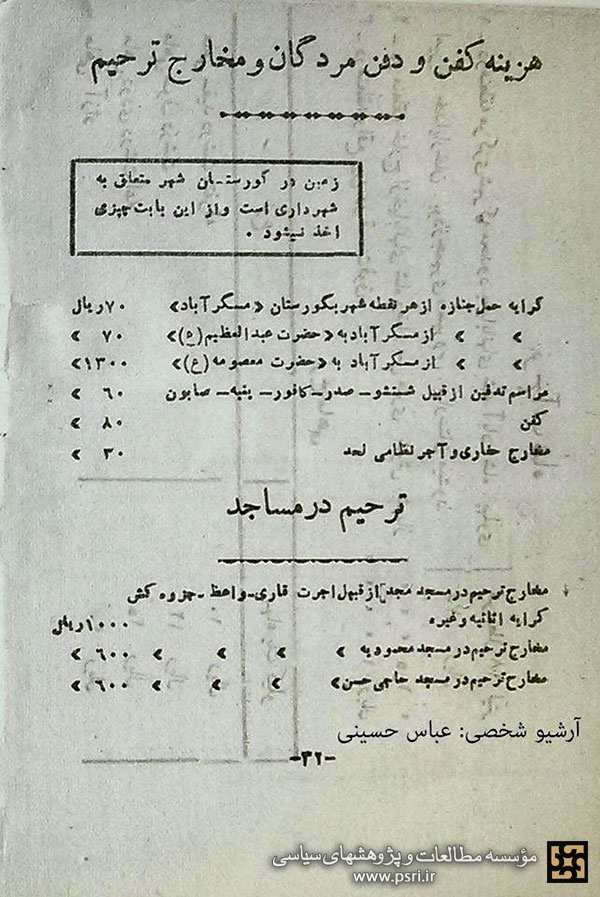 هزینه کفن و دفن مردگان و مخارج ترحیم
زمین در گورستان شهر متعلق به
شهرداری است و از این بابت چیزی
اخذ نمیشود .
کرایه حمل جنازه از هر نقطه شهر بگورستان «مسگر آباد» ۷۰ ریال
» » از مسگر آباد به «حضرت عبدالعظیم (ه)» ۷۰ »
» » از مسگر آباد به «حضرت معصومه (ع)» ۱۳۰۰»
مراسم تدفین از قبیل شستشو - صدر - کافور - پنبه - صابون ۶۰ »
کفن ۸۰ »
مخارج حفاری و آجر نظامی لحد ۳۰ »
ترحیم در مساجد
مخارج ترحیم در مسجد مجد از قبیل اجرت قاری - واعظ - جزوه کش
کرایه اثاثیه و غیره ۱۰۰۰ ریال
مخارج ترحیم در مسجد محمودیه » » » » ۶۰۰ »
مخارج ترحیم در مسجد حاجی حسن » » » » ۶۰۰ »
آرشیو شخصی: عباس حسینی
-۳۲-
مؤسسه مطالعات و پژوهشهای سیاسی
www.psri.ir